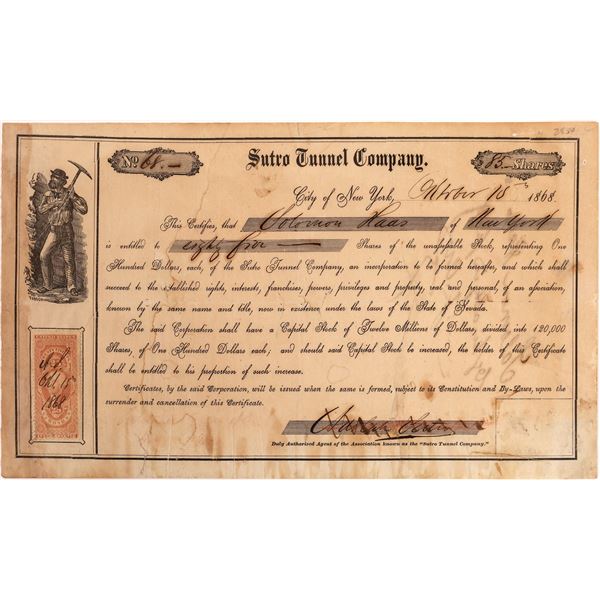 No. 68.—
Sutro Tunnel Company.
85.— Shares
City of New York, October 15 1868
This Certifies, that Solomon Haas of New York
is entitled to eighty five — Shares of the unassessable Stock, representing One
Hundred Dollars, each, of the Sutro Tunnel Company, an incorporation to be formed hereafter, and which shall
succeed to the established rights, interests, franchises, powers, privileges and property, real and personal, of an association,
known by the same name and title, now in existence under the laws of the State of Nevada.
The said Corporation shall have a Capital Stock of Twelve Millions of Dollars, divided into 120,000
Shares, of One Hundred Dollars each; and should said Capital Stock be increased, the holder of this Certificate
shall be entitled to his proportion of such increase.
Certificates, by the said Corporation, will be issued when the same is formed, subject to its Constitution and By-Laws, upon the
surrender and cancellation of this Certificate.
Duly Authorized Agent of the Association known as the "Sutro Tunnel Company."
Oct 15
1868